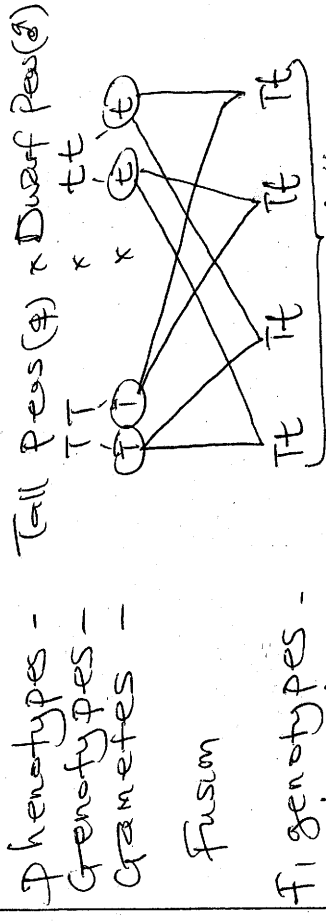 Phenotypes - Tall Peas (♀) x Dwarf Peas (♂)
Genotypes - TT x tt
Gametes - T T x t t
Fusion
F1 genotypes - Tt Tt Tt Tt